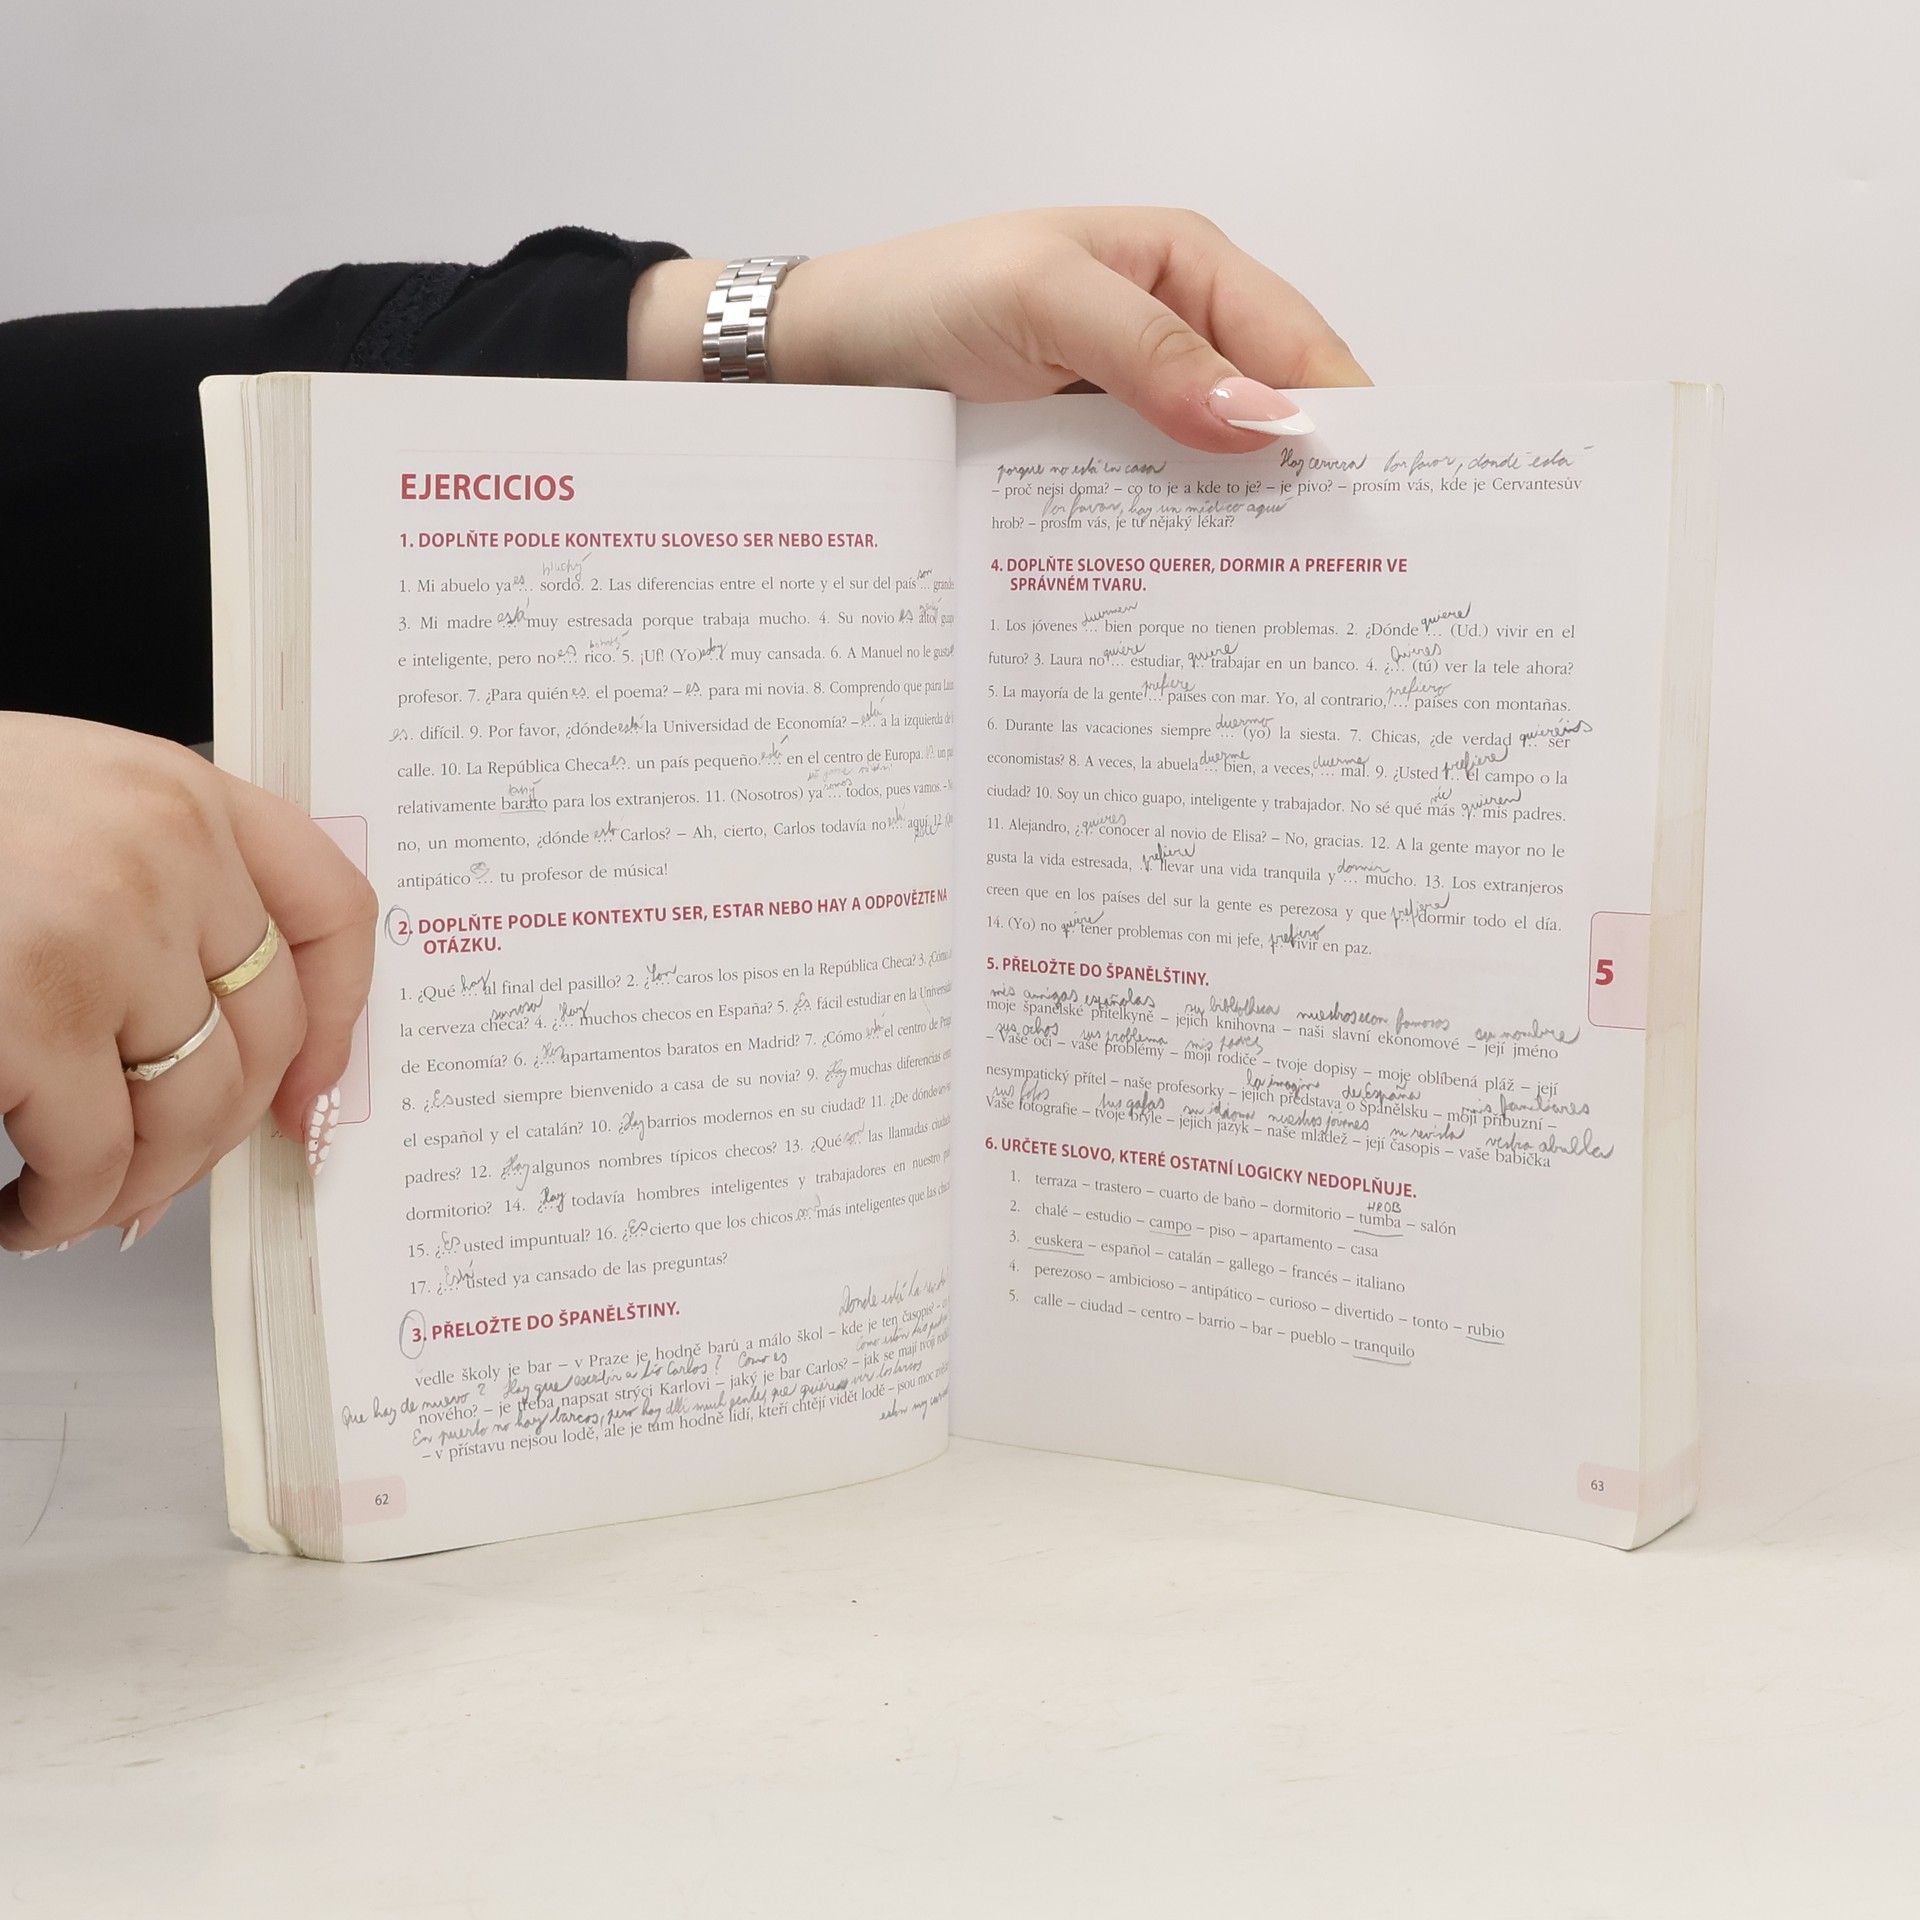 EJERCICIOS
1. DOPLŇTE PODLE KONTEXTU SLOVESO SER NEBO ESTAR.
hluchý
1. Mi abuelo ya es ... sordo. 2. Las diferencias entre el norte y el sur del país son ...
3. Mi madre está ... muy estresada porque trabaja mucho. 4. Su novio es ... alto,
e inteligente, pero no es ... rico. 5. ¡Uf! (Yo) estoy ... muy cansada. 6. A Manuel no le gusta
profesor. 7. ¿Para quién es el poema? – es para mi novia. 8. Comprendo que para
es. difícil. 9. Por favor, ¿dónde está la Universidad de Economía? – está a la izquierda
calle. 10. La República Checa es ... un país pequeño. está ... en el centro de Europa.
relativamente barato para los extranjeros. 11. (Nosotros) ya somos ... todos, pues vamos. –
no, un momento, ¿dónde está ... Carlos? – Ah, cierto, Carlos todavía no está ... aquí. 12.
antipático ... tu profesor de música!
2. DOPLŇTE PODLE KONTEXTU SER, ESTAR NEBO HAY A ODPOVĚZTE NA
OTÁZKU.
1. ¿Qué hay ... al final del pasillo? 2. ¿Son ... caros los pisos en la República Checa? 3.
la cerveza checa? 4. ¿Hay ... muchos checos en España? 5. ¿Es fácil estudiar en la
de Economía? 6. ¿Hay ... apartamentos baratos en Madrid? 7. ¿Cómo está ... el centro de
8. ¿Es usted siempre bienvenido a casa de su novia? 9. Hay muchas diferencias
el español y el catalán? 10. ¿Hay barrios modernos en su ciudad? 11. ¿De dónde
padres? 12. ¿Hay algunos nombres típicos checos? 13. ¿Qué son ... las llamadas
dormitorio? 14. ¿Hay todavía hombres inteligentes y trabajadores en nuestro
15. ¿Es usted impuntual? 16. ¿Es cierto que los chicos ... más inteligentes que las
17. ¿Está usted ya cansado de las preguntas?
Donde está la
3. PŘELOŽTE DO ŠPANĚLŠTINY.
vedle školy je bar – v Praze je hodně barů a málo škol – kde je ten časopis? –
Que hay de nuevo? Hay que escribir a tío Carlos? Como es
nového? – je třeba napsat strýci Karlovi – jaký je bar Carlos? – jak se mají tvoji
En puerto no hay barcos, pero hay
– v přístavu nejsou lodě, ale je tam hodně lidí, kteří chtějí vidět lodě – jsou moc
62
porque no está en casa Hay cerveza Por favor, donde está
– proč nejsi doma? – co to je a kde to je? – je pivo? – prosím vás, kde je Cervantesův
Por favor, hay un médico aquí
hrob? – prosím vás, je tu nějaký lékař?
4. DOPLŇTE SLOVESO QUERER, DORMIR A PREFERIR VE
SPRÁVNÉM TVARU.
1. Los jóvenes duermen ... bien porque no tienen problemas. 2. ¿Dónde quiere ... (Ud.) vivir en el
futuro? 3. Laura no quiere ... estudiar, quiere ... trabajar en un banco. 4. ¿Quieres ... (tú) ver la tele ahora?
5. La mayoría de la gente prefiere ... países con mar. Yo, al contrario, prefiero ... países con montañas.
6. Durante las vacaciones siempre duermo ... (yo) la siesta. 7. Chicas, ¿de verdad ... ser
economistas? 8. A veces, la abuela duerme ... bien, a veces, duerme ... mal. 9. ¿Usted prefiere ... el campo o la
ciudad? 10. Soy un chico guapo, inteligente y trabajador. No sé qué más quieren ... mis padres.
11. Alejandro, ¿quieres conocer al novio de Elisa? – No, gracias. 12. A la gente mayor no le
gusta la vida estresada, prefiere ... llevar una vida tranquila y dormir ... mucho. 13. Los extranjeros
creen que en los países del sur la gente es perezosa y que prefiere dormir todo el día.
14. (Yo) no quiere tener problemas con mi jefe, prefiero vivir en paz.
5. PŘELOŽTE DO ŠPANĚLŠTINY.
mis amigas españolas su biblioteca famosos su nombre
moje španělské přítelkyně – jejich knihovna – naši slavní ekonomové – její jméno
sus ochos sus problema mis padres
– Vaše oči – vaše problémy – moji rodiče – tvoje dopisy – moje oblíbená pláž – její
nesympatický přítel – naše profesorky – jejich představa o Španělsku – moji příbuzní –
la imagin de España mis familiares
sus fotos tus gafas su idioma nuestros jóvenes su revista
Vaše fotografie – tvoje brýle – jejich jazyk – naše mládež – její časopis – vaše babička
6. URČETE SLOVO, KTERÉ OSTATNÍ LOGICKY NEDOPLŇUJE.
HROB
1. terraza – trastero – cuarto de baño – dormitorio – tumba – salón
2. chalé – estudio – campo – piso – apartamento – casa
3. euskera – español – catalán – gallego – francés – italiano
4. perezoso – ambicioso – antipático – curioso – divertido – tonto – rubio
5. calle – ciudad – centro – barrio – bar – pueblo – tranquilo
5
63